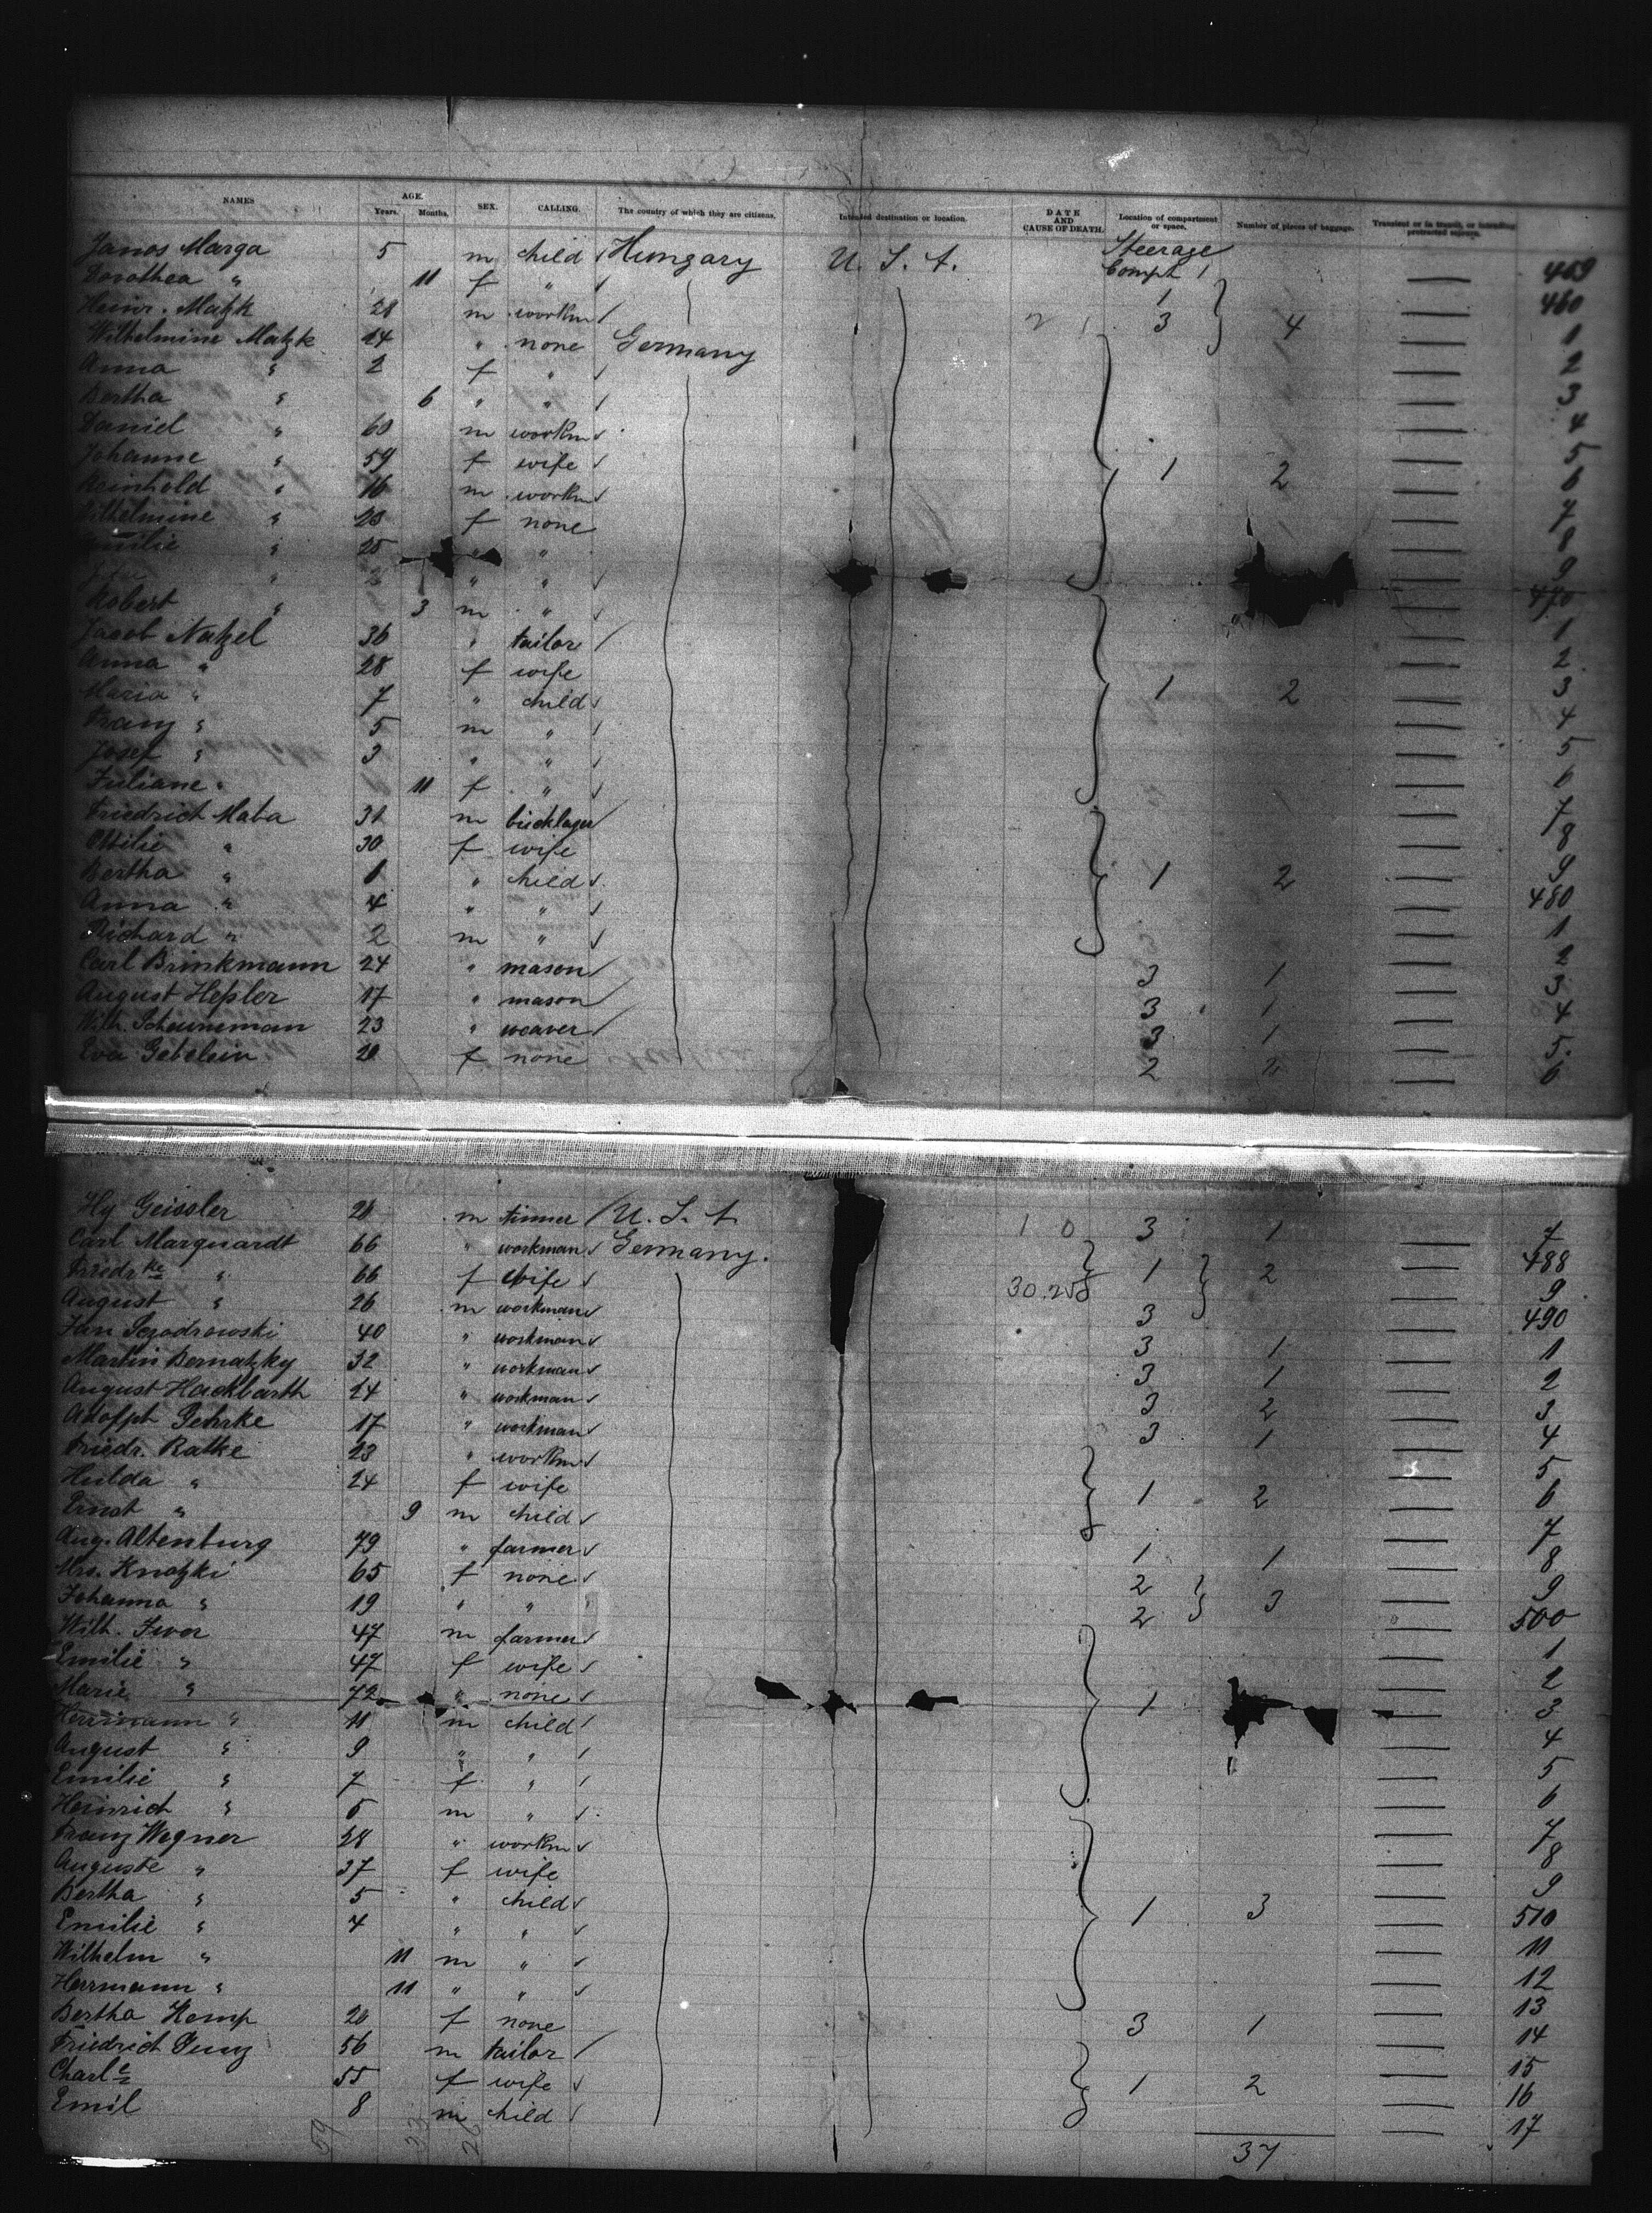 NAMES AGE. Years. Months. SEX. CALLING. The country of which they are citizens. Intended destination or location. DATE AND CAUSE OF DEATH. Location of compartment or space. Number of pieces of baggage. Transient or in transit, or intending protracted sojourn.
Janos Marga 5 m child Hungary U. S. A. Steerage Compt 1 — 459
Dorothea " 11 f " 1 — 460
Heinr. Matzk 28 m workm 3 4 — 1
Wilhelmine Matzk 24 " none Germany — 2
Anna " 2 f " — 3
Bertha " 6 " " — 4
Daniel " 60 m workm — 5
Johanne " 59 f wife 1 2 — 6
Reinhold " 16 m workm — 7
Wilhelmine " 23 f none — 8
Emilie " 25 " " — 9
" 2 " " — 470
Robert " 3 m " — 1
Jacob Natzel 36 " tailor — 2
Anna " 28 f wife — 3
Maria " 7 " child 1 2 — 4
Franz " 5 m " — 5
Josef " 3 " " — 6
Juliane " 11 f " — 7
Friedrich Maba 31 m bricklayer — 8
Ottilie " 30 f wife — 9
Bertha " child 1 2 — 480
Anna " 4 " " — 1
Richard " 2 m " — 2
Carl Brinkmann 24 " mason 3 1 — 3
August Hepler 17 " mason 3 1 — 4
Wilh. Scheuneman 23 " weaver 3 1 — 5
Eva Gebelein 20 f none 2 — 6
Hy Geissler 26 m tinner U. S. A. 1 0 3 1 — 7
Carl Marquardt 66 " workman Germany. 1 2 — 488
Friedrke " 66 f wife — 9
August " 26 m workman 3 — 490
Jan 40 " workman 3 1 — 1
Martin Bernatzky 32 " workman 3 1 — 2
August Hackbarth 24 " workman 3 2 — 3
Adolph Gehrke 17 " workman 3 1 — 4
Friedr. Ratke 23 " workm — 5
Hulda " 24 f wife 1 2 — 6
Ernst " 9 m child — 7
Aug. Altenburg 79 " farmer 1 1 — 8
Mrs. Knatzki 65 f none 2 3 — 9
Johanna " 19 " " 2 — 500
Wilh. 47 m farmer — 1
Emilie " 47 f wife — 2
Marie " 72 " none 1 — 3
Herrmann " 11 m child — 4
August " 9 " " — 5
Emilie " 7 f " — 6
Heinrich " 5 m " — 7
Franz Wegner 28 " workm — 8
Auguste " 37 f wife — 9
Bertha " 5 " child 1 3 — 510
Emilie " 4 " " — 11
Wilhelm " 11 m " — 12
Herrmann " 11 " " — 13
Bertha Kemp 20 f none 3 1 — 14
Friedrich 56 m tailor — 15
Charle 55 f wife 1 2 — 16
Emil 8 m child — 17
37